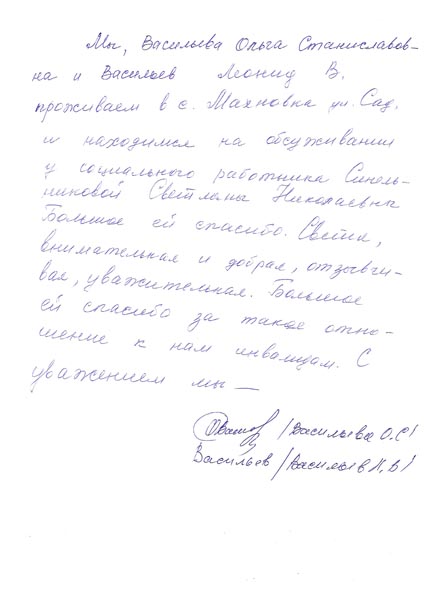 Мы, Васильева Ольга Станиславов-
на и Васильев Леонид В.
проживаем в с. Махновка ул. Сад.
и находимся на обсуживании
у социального работника Синель-
никовой Светланы Николаевны
Большое ей спасибо. Света,
внимательная и добрая, отзывчи-
вая, уважительная. Большое
ей спасибо за такое отно-
шение к нам инвалидам. С
уважением мы —
/Васильева О.С/
Васильев /Васильев Л.В/